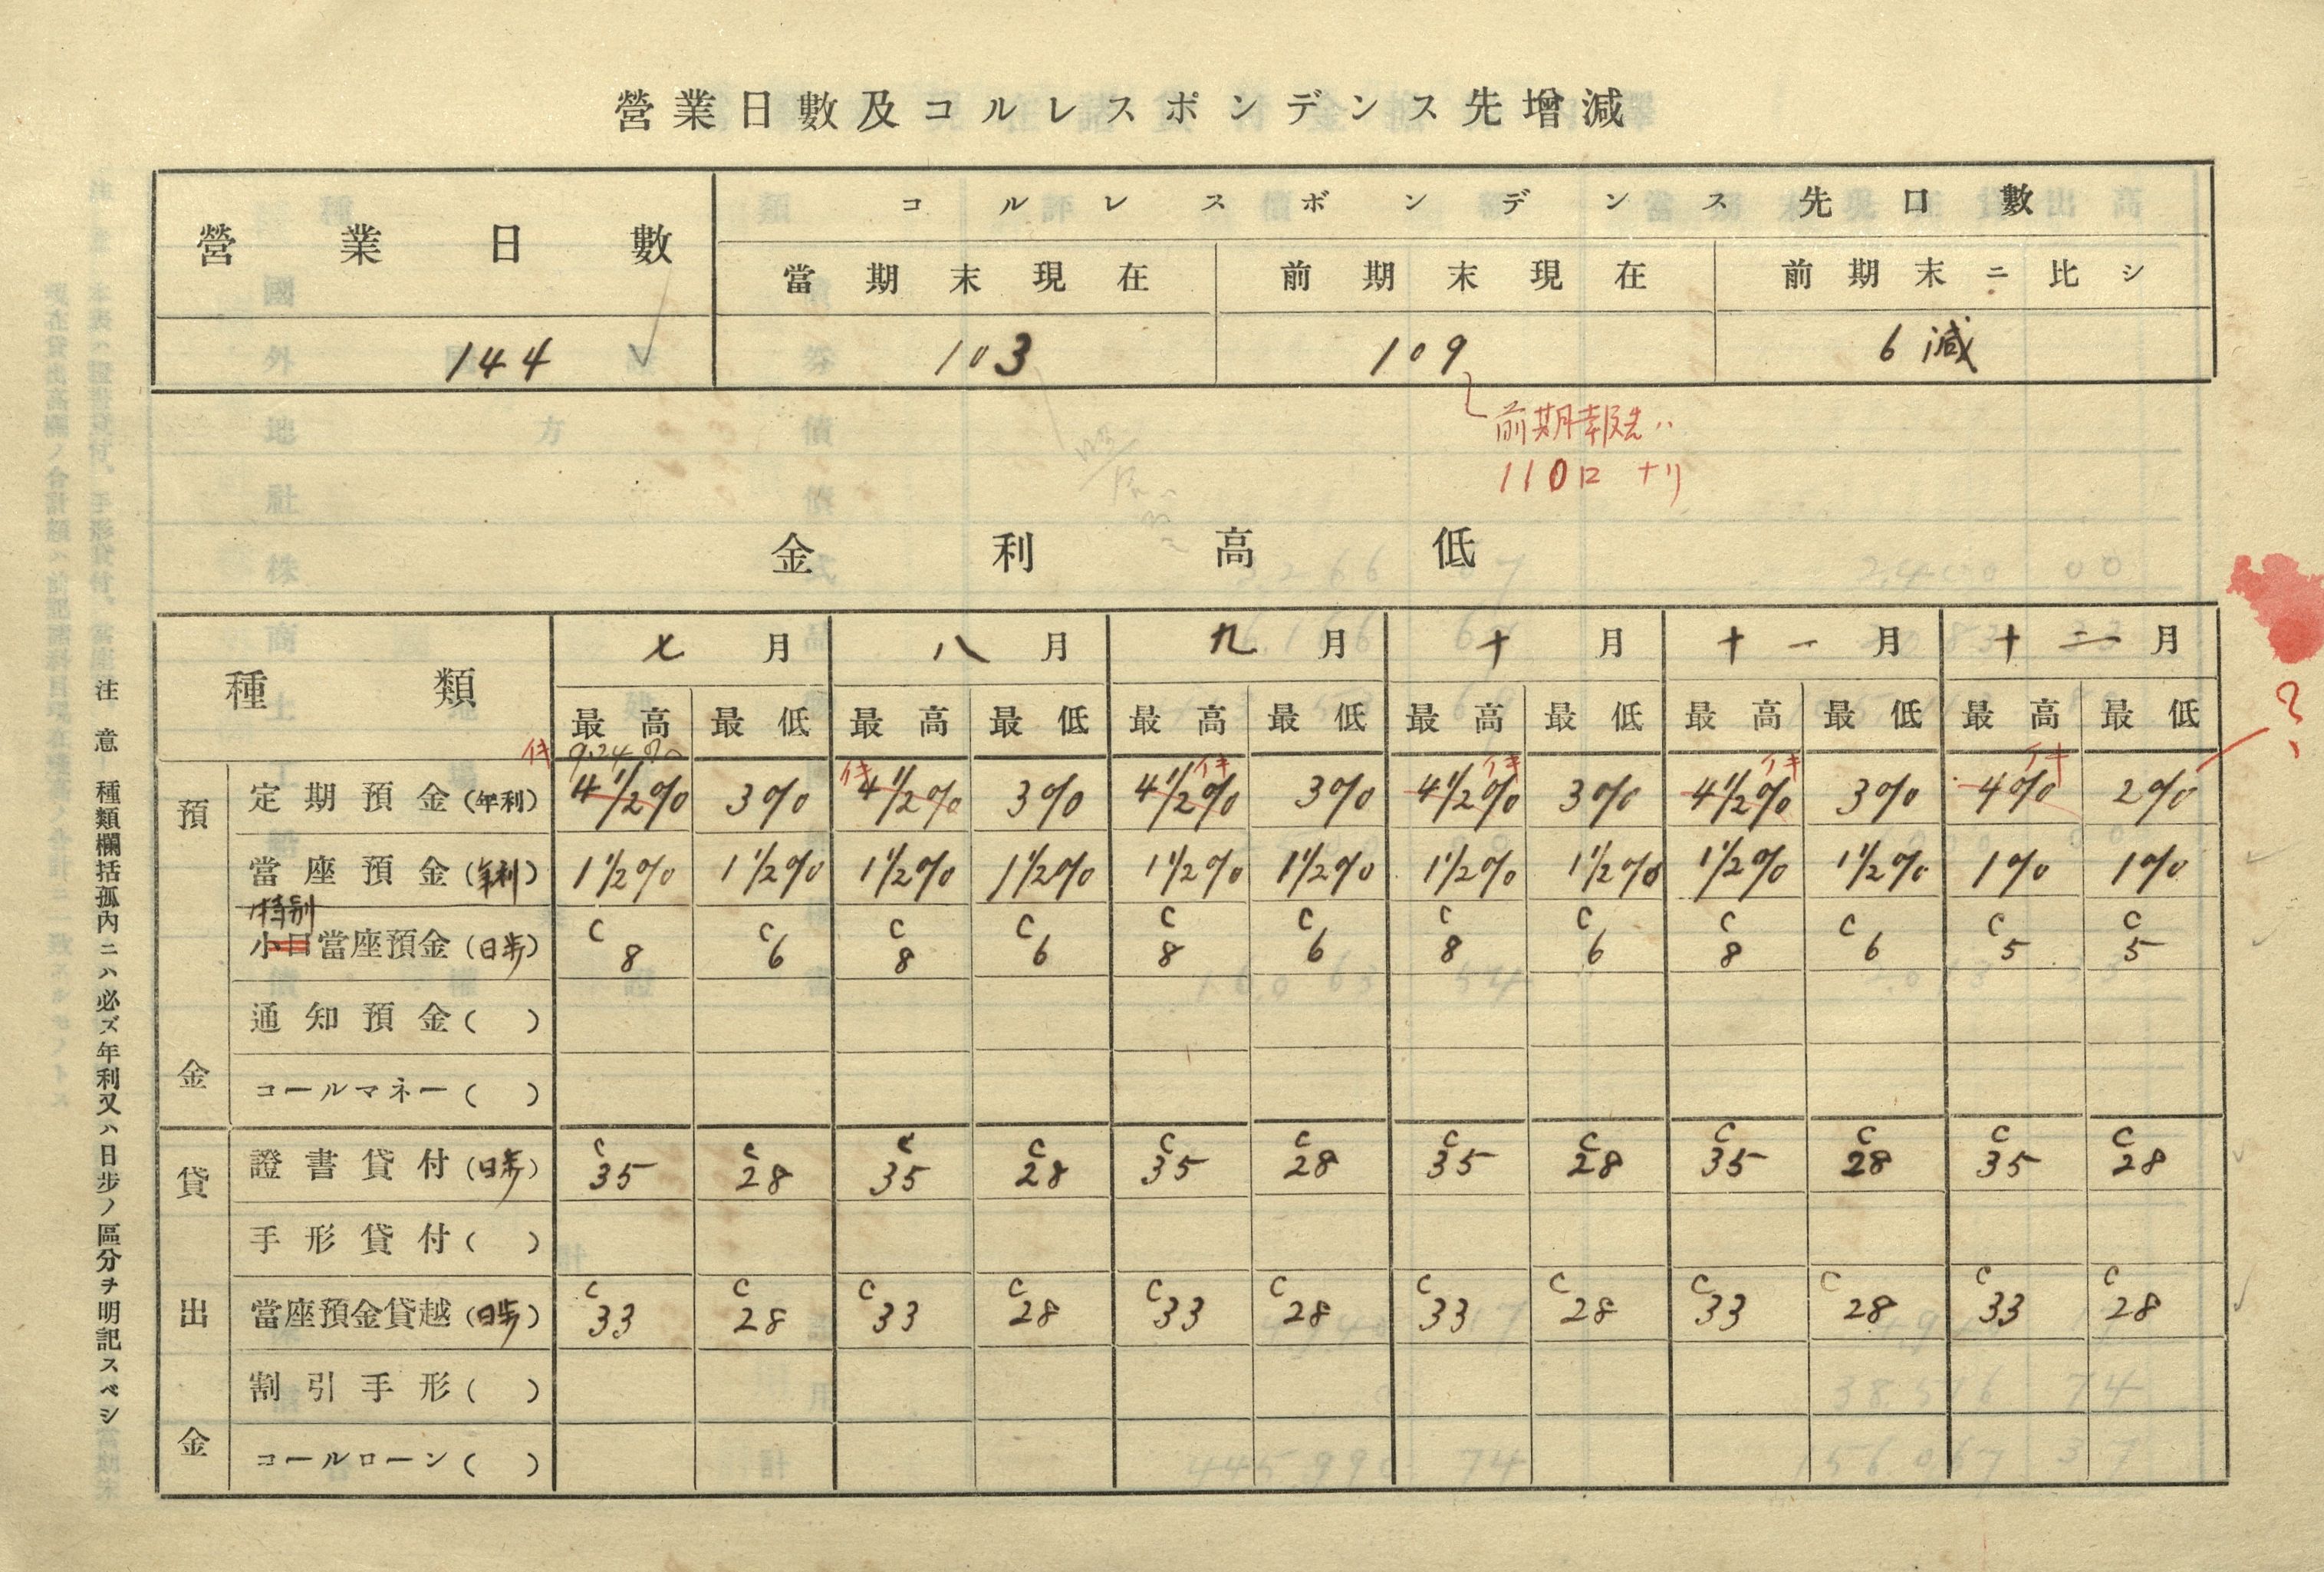 營業日數及コルレスポンデンス先增減
營業日數
コルレスボンデンス先口數
當期末現在 前期末現在 前期末ニ比シ
144 103 109 6減
前期報告ハ
110口ナリ
金利高低
種類 七月 八月 九月 十月 十一月 十二月
最高 最低 最高 最低 最高 最低 最高 最低 最高 最低 最高 最低
預金
定期預金(年利) 4 1/2% 3% 4 1/2% 3% 4 1/2% 3% 4 1/2% 3% 4 1/2% 3% 4% 2%
?
當座預金(年利) 1 1/2% 1 1/2% 1 1/2% 1 1/2% 1 1/2% 1 1/2% 1 1/2% 1 1/2% 1 1/2% 1 1/2% 1% 1%
特別
小口當座預金(日歩) C8 C6 C8 C6 C8 C6 C8 C6 C8 C6 C5 C5
通知預金( )
コールマネー( )
貸出金
證書貸付(日歩) C35 C28 C35 C28 C35 C28 C35 C28 C35 C28 C35 C28
手形貸付( )
當座預金貸越(日歩) C33 C28 C33 C28 C33 C28 C33 C28 C33 C28 C33 C28
割引手形( )
コールローン( )
注意 種類欄括孤內ニハ必ズ年利又ハ日步ノ區分ヲ明記スベシ